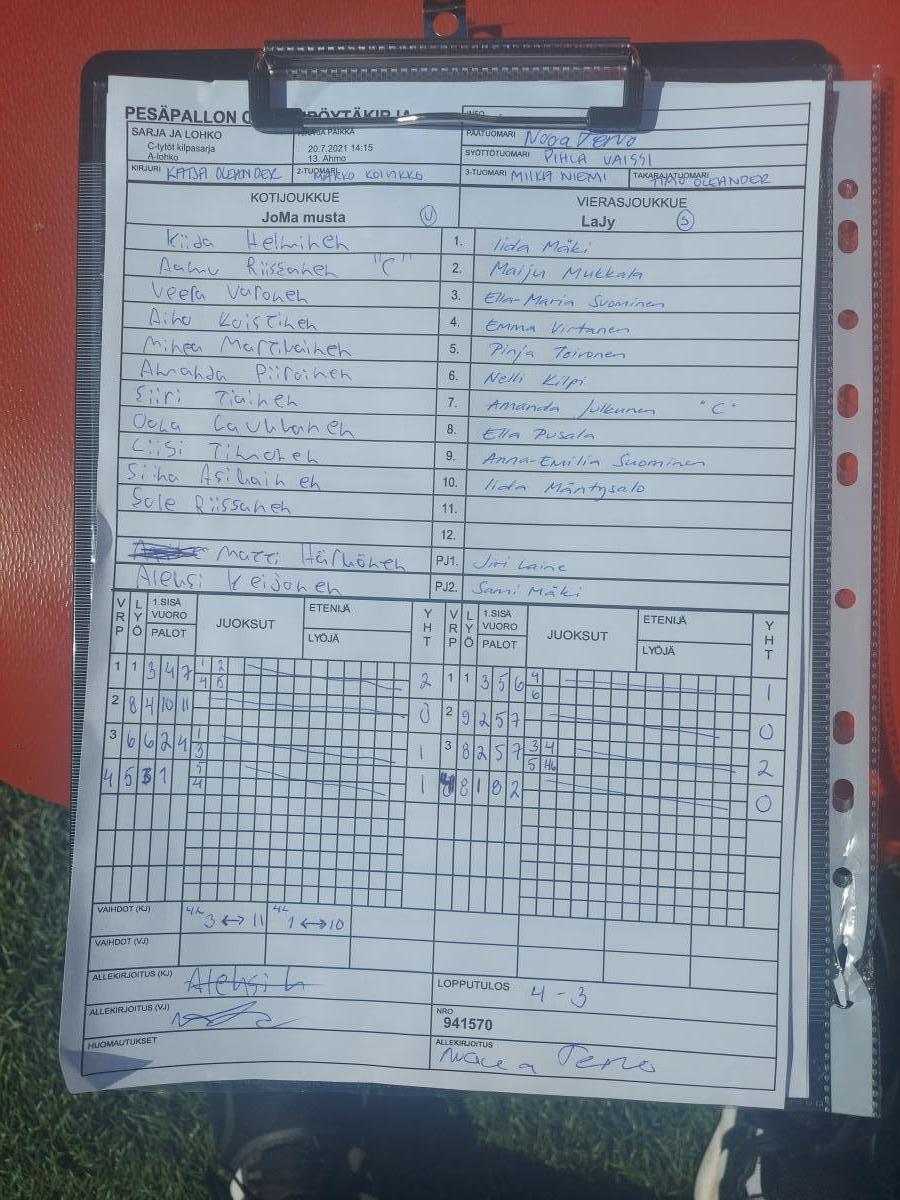 PESÄPALLON
SARJA JA LOHKO
C-tytöt kilpasarja
A-lohko
PAIKKA
20.7.2021 14:15
13. Ahmo
PÄÄTUOMARI Noora Tervo
SYÖTTÖTUOMARI PIHLA VAISSI
KIRJURI KATJA OLEANDER
2-TUOMARI MARKO KOIVIKKO
3-TUOMARI MIIKA NIEMI
TAKARAJATUOMARI TIMO OLEANDER
KOTIJOUKKUE
JoMa musta U
VIERASJOUKKUE
LaJy S
Kiida Helminen 1. Iida Mäki
Aamu Riissanen "C" 2. Maiju Mukkala
Veera Varonen 3. Ella-Maria Suominen
Aino Koistinen 4. Emma Virtanen
Minea Martikainen 5. Pinja Toironen
Amanda Piiroinen 6. Nelli Kilpi
Siiri Tiainen 7. Amanda Julkunen "C"
Oona Laukkanen 8. Ella Pusala
Liisi Timonen 9. Anna-Emilia Suominen
Siina Asikainen 10. Iida Mäntysalo
Sole Riissanen 11.
12.
Matti Härkönen PJ1. Jiri Laine
Aleksi Keijonen PJ2. Sami Mäki
VRP LYÖ 1.SISÄ VUORO PALOT JUOKSUT ETENIJÄ LYÖJÄ YHT VRP LYÖ 1.SISÄ VUORO PALOT JUOKSUT ETENIJÄ LYÖJÄ YHT
1 1 3 4 7 1 2 2 1 1 3 5 6 4 1
4 5 6
2 8 4 10 11 0 2 9 2 5 7 0
3 6 6 2 4 1 1 3 8 2 5 7 3 4 2
3 5 46
4 5 3 1 5 1 4 8 1 8 2 0
4
VAIHDOT (KJ) 4L 3 ↔ 11 4L 1 ↔ 10
VAIHDOT (VJ)
ALLEKIRJOITUS (KJ) Aleksi K
LOPPUTULOS 4 - 3
ALLEKIRJOITUS (VJ)
NRO
941570
HUOMAUTUKSET
ALLEKIRJOITUS
Tervo